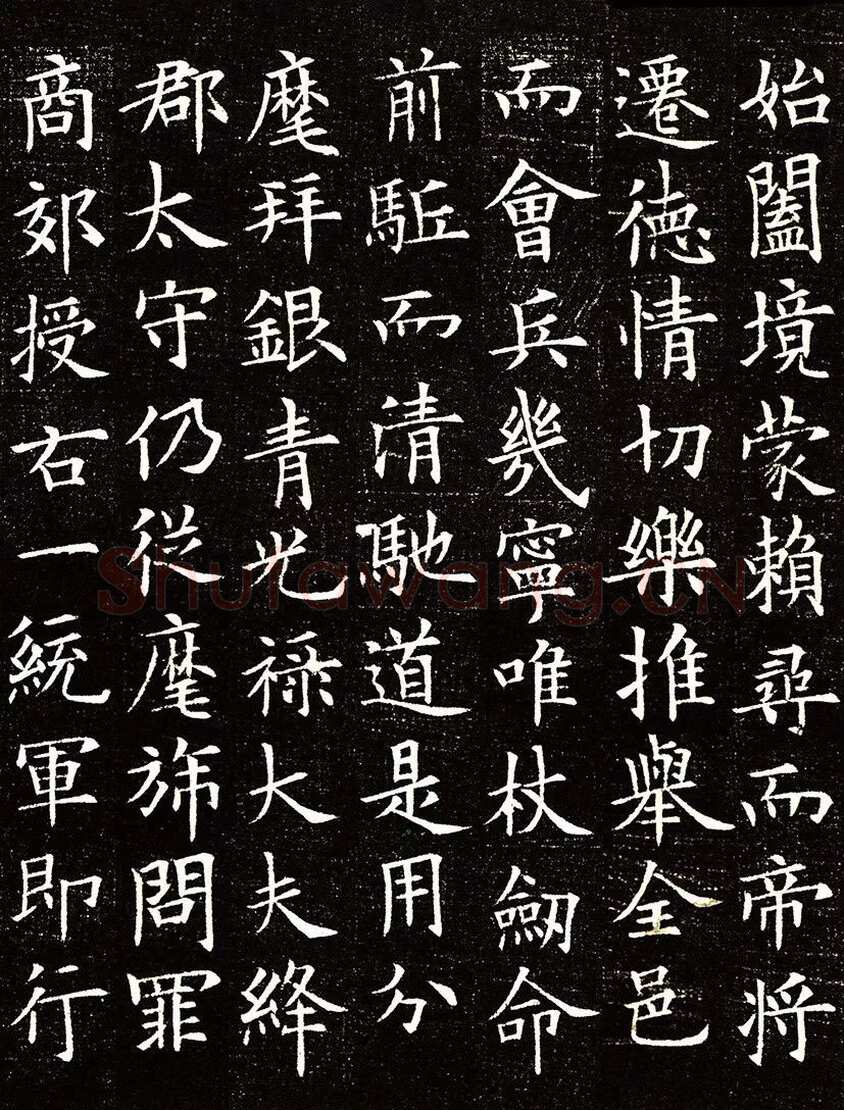 始闔境蒙賴尋而帝将
遷徳情切樂推舉全邑
而會兵幾寧唯杖劒命
前駈而清馳道是用分
麾拜銀青光禄大夫絳
郡太守仍従麾旆問罪
商郊授右一統軍即行
Shufawang.CN